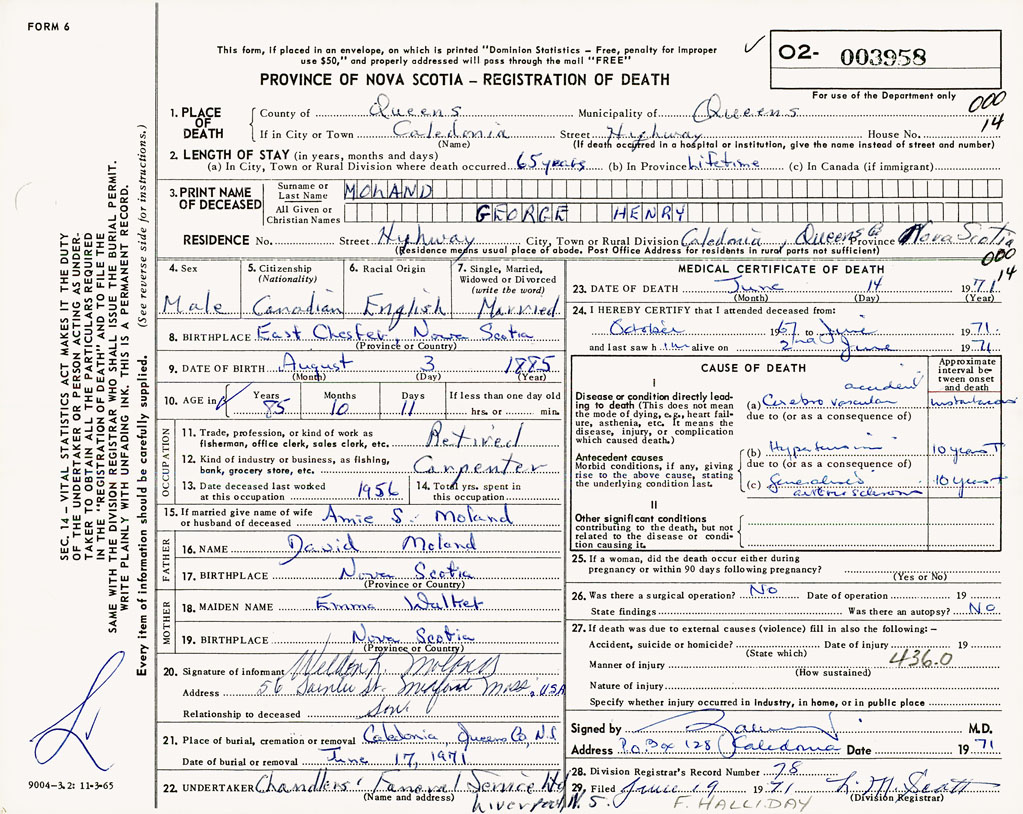 FORM 6
This form, if placed in an envelope, on which is printed "Dominion Statistics – Free, penalty for improper
use $50," and properly addressed will pass through the mail "FREE"
PROVINCE OF NOVA SCOTIA – REGISTRATION OF DEATH
02- 003958
For use of the Department only
000
14
1. PLACE OF DEATH
County of Queens Municipality of Queens
If in City or Town Caledonia Street Highway House No.
(Name) (If death occurred in a hospital or institution, give the name instead of street and number)
2. LENGTH OF STAY (in years, months and days)
(a) In City, Town or Rural Division where death occurred 65 years (b) In Province Lifetime (c) In Canada (if immigrant)
3. PRINT NAME OF DECEASED
Surname or Last Name MOLAND
All Given or Christian Names GEORGE HENRY
RESIDENCE No. Street Highway City, Town or Rural Division Caledonia, Queens Co Province Nova Scotia
(Residence means usual place of abode. Post Office Address for residents in rural parts not sufficient)
000
14
4. Sex Male
5. Citizenship (Nationality) Canadian
6. Racial Origin English
7. Single, Married, Widowed or Divorced (write the word) Married
8. BIRTHPLACE East Chester, Nova Scotia
(Province or Country)
9. DATE OF BIRTH August 3 1885
(Month) (Day) (Year)
10. AGE in Years 85 Months 10 Days 11 If less than one day old hrs. or min.
OCCUPATION
11. Trade, profession, or kind of work as fisherman, office clerk, sales clerk, etc. Retired
12. Kind of industry or business, as fishing, bank, grocery store, etc. Carpenter
13. Date deceased last worked at this occupation 1956 14. Total yrs. spent in this occupation
15. If married give name of wife or husband of deceased Amie S. Moland
FATHER
16. NAME David Moland
17. BIRTHPLACE Nova Scotia
(Province or Country)
MOTHER
18. MAIDEN NAME Emma Walker
19. BIRTHPLACE Nova Scotia
(Province or Country)
20. Signature of informant Moland
Address 56 St. Medford Mass., USA
Relationship to deceased Son
21. Place of burial, cremation or removal Caledonia Queens Co, N.S.
Date of burial or removal June 17, 1971
22. UNDERTAKER Chandlers' Funeral Service Ltd
(Name and address) Liverpool, N.S.
MEDICAL CERTIFICATE OF DEATH
23. DATE OF DEATH June 14 1971
(Month) (Day) (Year)
24. I HEREBY CERTIFY that I attended deceased from:
October 1967 to June 1971
and last saw him alive on 2nd June 1971
CAUSE OF DEATH
Approximate interval between onset and death
I
Disease or condition directly leading to death (This does not mean the mode of dying, e.g., heart failure, asthenia, etc. It means the disease, injury, or complication which caused death.)
(a) Cerebro vascular accident
due to (or as a consequence of)
Antecedent causes
Morbid conditions, if any, giving rise to the above cause, stating the underlying condition last.
(b) Hypertension 10 years +
due to (or as a consequence of)
(c) Generalised arteriosclerosis 10 years +
II
Other significant conditions contributing to the death, but not related to the disease or condition causing it.
25. If a woman, did the death occur either during pregnancy or within 90 days following pregnancy?
(Yes or No)
26. Was there a surgical operation? No Date of operation 19
State findings Was there an autopsy? No
27. If death was due to external causes (violence) fill in also the following: –
Accident, suicide or homicide? Date of injury 19
(State which) 436.0
Manner of injury
(How sustained)
Nature of injury
Specify whether injury occurred in industry, in home, or in public place
Signed by M.D.
Address P.O. Box 128 Caledonia Date 1971
28. Division Registrar's Record Number 78
29. Filed June 19 1971 L. M. Scott
(Division Registrar)
F. HALLIDAY
SEC. 14 – VITAL STATISTICS ACT MAKES IT THE DUTY
OF THE UNDERTAKER OR PERSON ACTING AS UNDER-
TAKER TO OBTAIN ALL THE PARTICULARS REQUIRED
IN THE "REGISTRATION OF DEATH" AND TO FILE THE
SAME WITH THE DIVISION REGISTRAR WHO SHALL ISSUE THE BURIAL PERMIT.
WRITE PLAINLY WITH UNFADING INK. THIS IS A PERMANENT RECORD.
Every item of information should be carefully supplied. (See reverse side for instructions.)
9004-3.2: 11-3-65